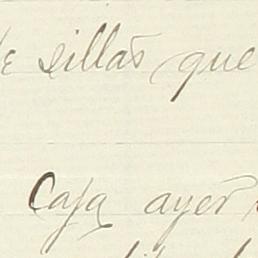 de sillas que
Caja ayer